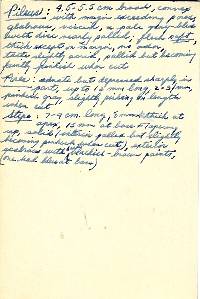 Pileus: 4.5-5.5 cm broad, convex
with margin exceeding pores,
glabrous, viscid, a pale gray-blue
but disc nearly pallid; flesh soft,
thick except on margin, no odor,
taste slight, pallid, but becoming
faintly pinkish when cut
Pores: adnate but depressed sharply in
part, up to 12 mm long, 2-3/mm,
pinkish gray, slightly pinking
when cut
Stipe: 7-9 cm long, 8 mm thick at
apex, 15 mm at base & tapering
up, solid (context pallid but slightly
becoming pinkish when cut), exterior
scabrous with blackish-brown points,
one had blue at base)